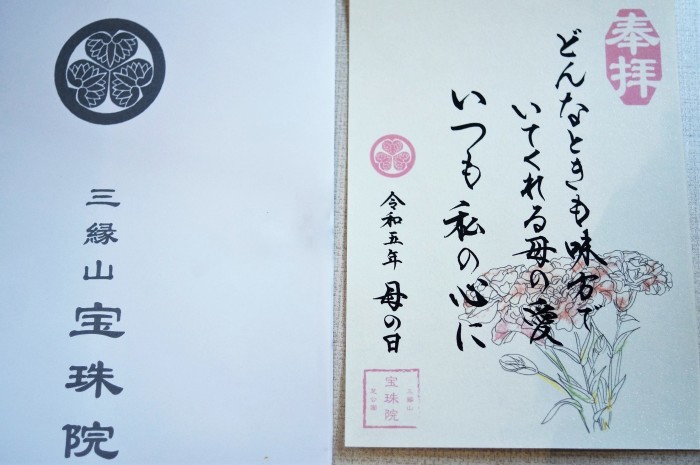 三縁山 宝珠院
奉拝
どんなときも味方で
いてくれる母の愛
いつも私の心に
令和五年 母の日
三縁山
宝珠院
芝公園